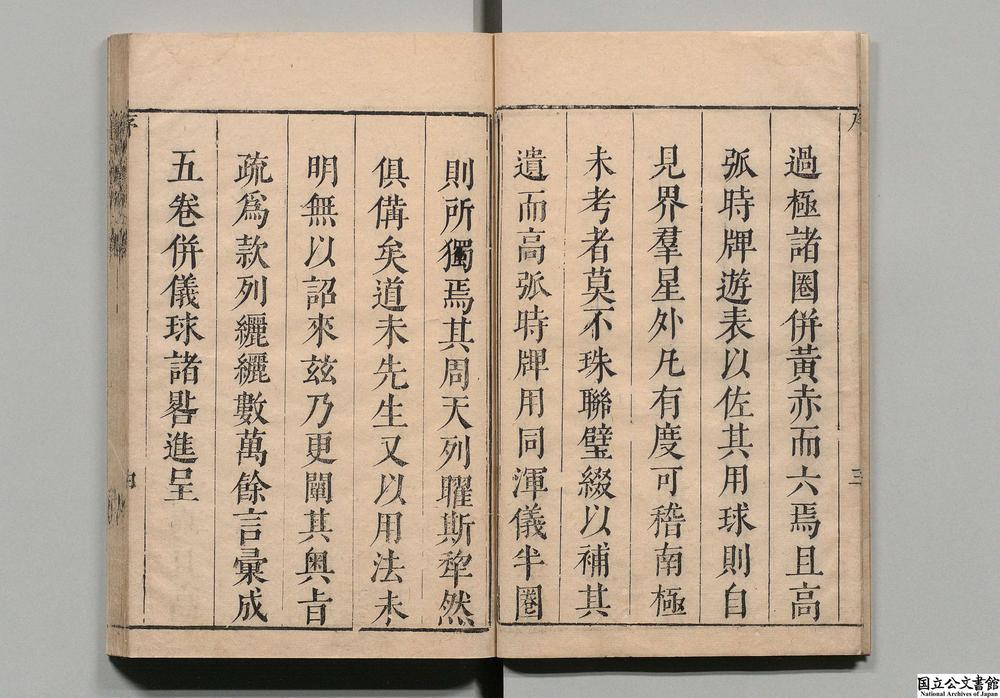 過極諸圈併黃赤而六焉且高
弧時牌遊表以佐其用球則自
見界羣星外凡有度可稽南極
未考者莫不珠聯璧綴以補其
遺而高弧時牌用同渾儀半圈
則所獨焉其周天列曜斯犂然
俱備矣道未先生又以用法未
明無以詔來玆乃更闡其奧㫖
疏爲款列纚纚數萬餘言彙成
五卷併儀球諸噐進呈
序
三
序
四
国立公文書館
National Archives of Japan